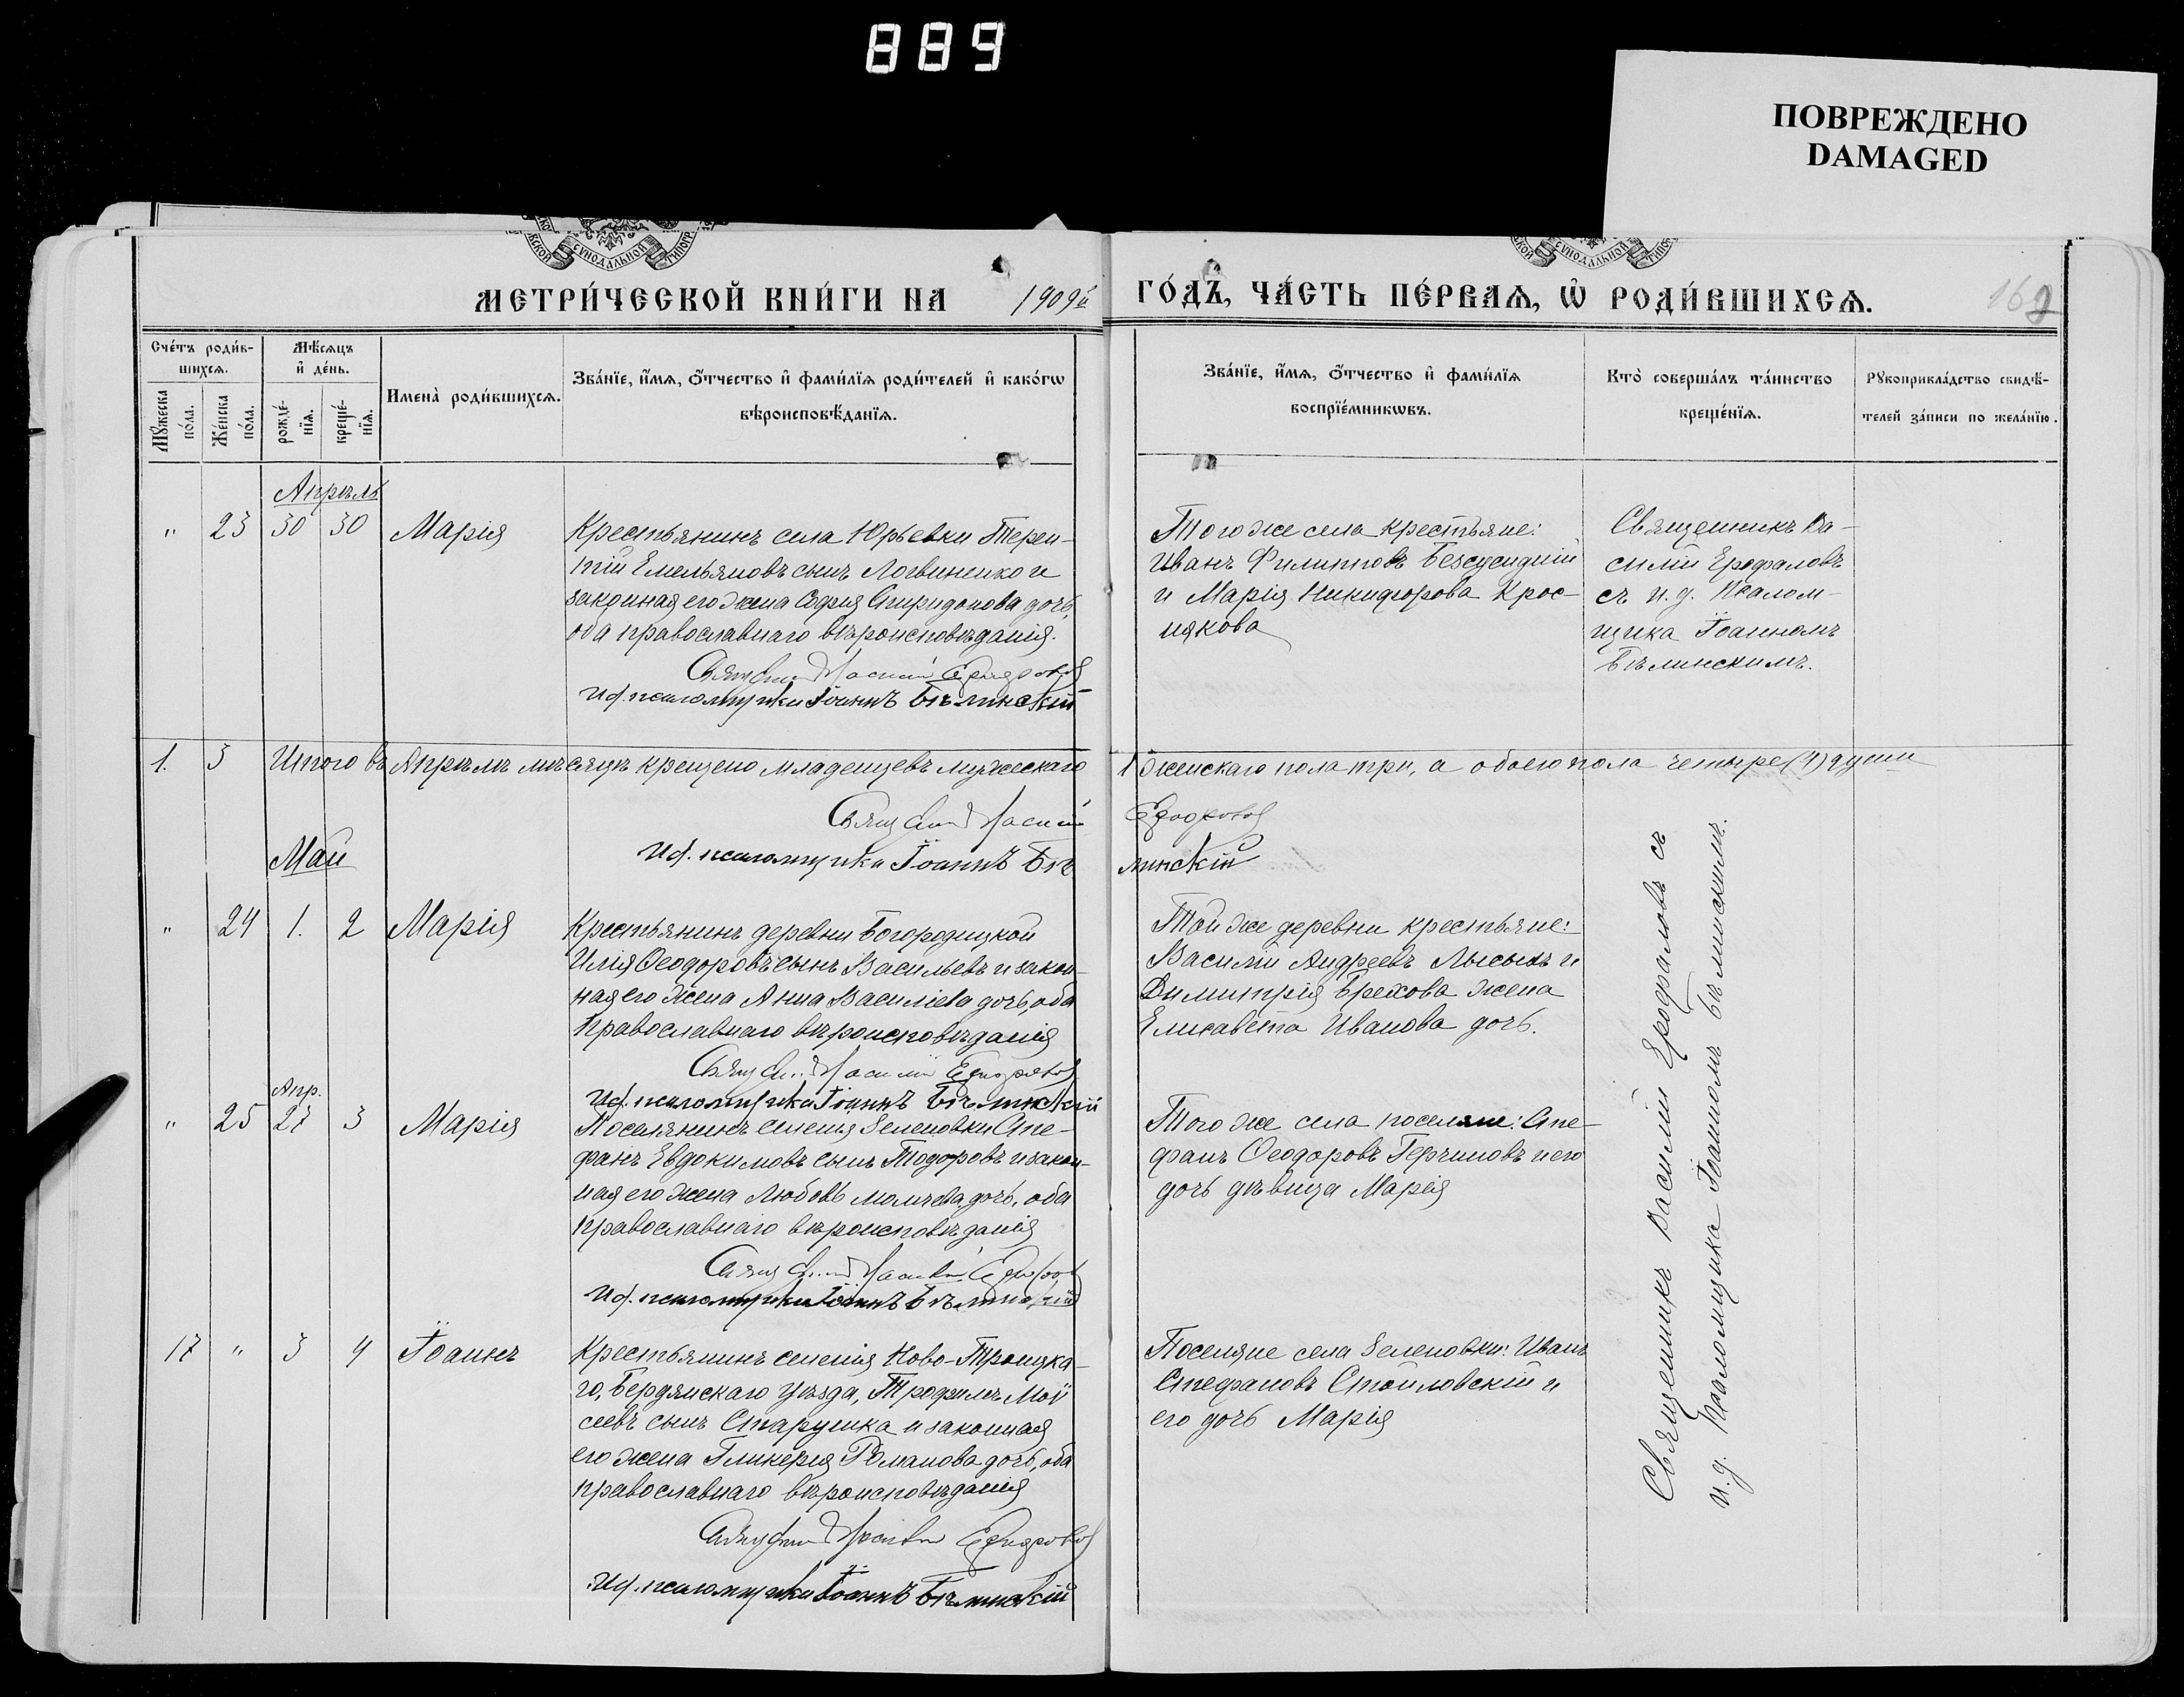 889
ПОВРЕЖДЕНО
DAMAGED
МЕТРИ́ЧЕСКОЙ КНИ́ГИ НА 1909й ГО́ДЪ, ЧА́СТЬ ПЕ́РВАЯ, Ѡ РОДИ́ВШИХСЯ.
Сче́тъ роди́в-
шихся.
Мꙋжеска по́ла.
Же́нска по́ла.
Мѣ́сяцъ и де́нь.
рожде́-
нїя.
креще́-
нїя.
Имена̀ роди́вшихся.
Зва́нїе, и́мя, ѻ́тчество и фами́лїя роди́телей и како́гѡ
вѣроисповѣ́данїя.
Зва́нїе, и́мя, ѻ́тчество и фами́лїя
воспрїе́мникѡвъ.
Кто̀ соверша́лъ та́инство
креще́нїя.
Рꙋкоприкла́дство свидѣ́-
телей за́писи по жела́нїю.
Апрѣль
" 23 30 30 Марія
Крестьянинъ села Юрьевки Терен-
тій Емельяновъ сынъ Логвиненко и
законная его жена Софія Спиридонова дочь,
оба православнаго вѣроисповѣданія.
Василій
Ид. псаломщика Іоаннъ Бѣлинскій
Того же села крестьяне:
Иванъ Филипповъ
и Марія Никифорова Крос-
някова
Священникъ Ва-
силій
съ и. д. Псалом-
щика Іоанномъ
Бѣлинскимъ.
1. 3 Итого въ Апрѣлѣ мѣсяцѣ крещено младенцевъ мужескаго 1 женскаго пола три, а обоего пола четыре (4) души
Василій
Ид. псаломщика Іоаннъ Бѣлинскій
Май
" 24 1. 2 Марія
Крестьянинъ деревни Богородицкой
Илія Ѳеодоровъ сынъ Васильевъ и закон-
ная его жена Анна Василіева дочь, оба
Православнаго вѣроисповѣданія
Василій
Ид. псаломщика Іоаннъ Бѣлинскій
Той же деревни крестьяне:
Василій Андреевъ Лысыхъ и
Димитрія Брехова жена
Елисавета Иванова дочь.
Апр.
" 25 27 3 Марія
Поселянинъ селенія Зеленовки Сте-
фанъ Евдокимовъ сынъ Тодоровъ и закон-
ная его жена Любовь дочь, оба
Православнаго вѣроисповѣданія
Ид. псаломщика Іоаннъ Бѣлинскій
Того же села поселяне: Сте-
фанъ Ѳеодоровъ Герчиновъ и его
дочь дѣвица Марія
17 " 3 4 Іоаннъ
Крестьянинъ селенія Ново-Троицка-
го, Бердянскаго уѣзда, Трофимъ Мой
сеевъ сынъ Старушка и законная
его жена Гликерія Романова дочь, оба
православнаго вѣроисповѣданія
Ид. псаломщика Іоаннъ Бѣлинскій
Поселяне села Зеленовки: Иванъ
Стефановъ Стойловскій и
его дочь Марія
Священникъ Василій съ
и. д. Псаломщика Іоанномъ Бѣлинскимъ.